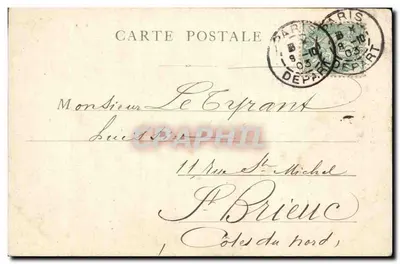 CARTE POSTALE
PARIS
8 -10
03
DEPART
PARIS
8 -10
03
DEPART
Monsieur Le Tyrant
CPAPHIL
11 rue St Michel
St Brieuc
(Côtes du Nord)